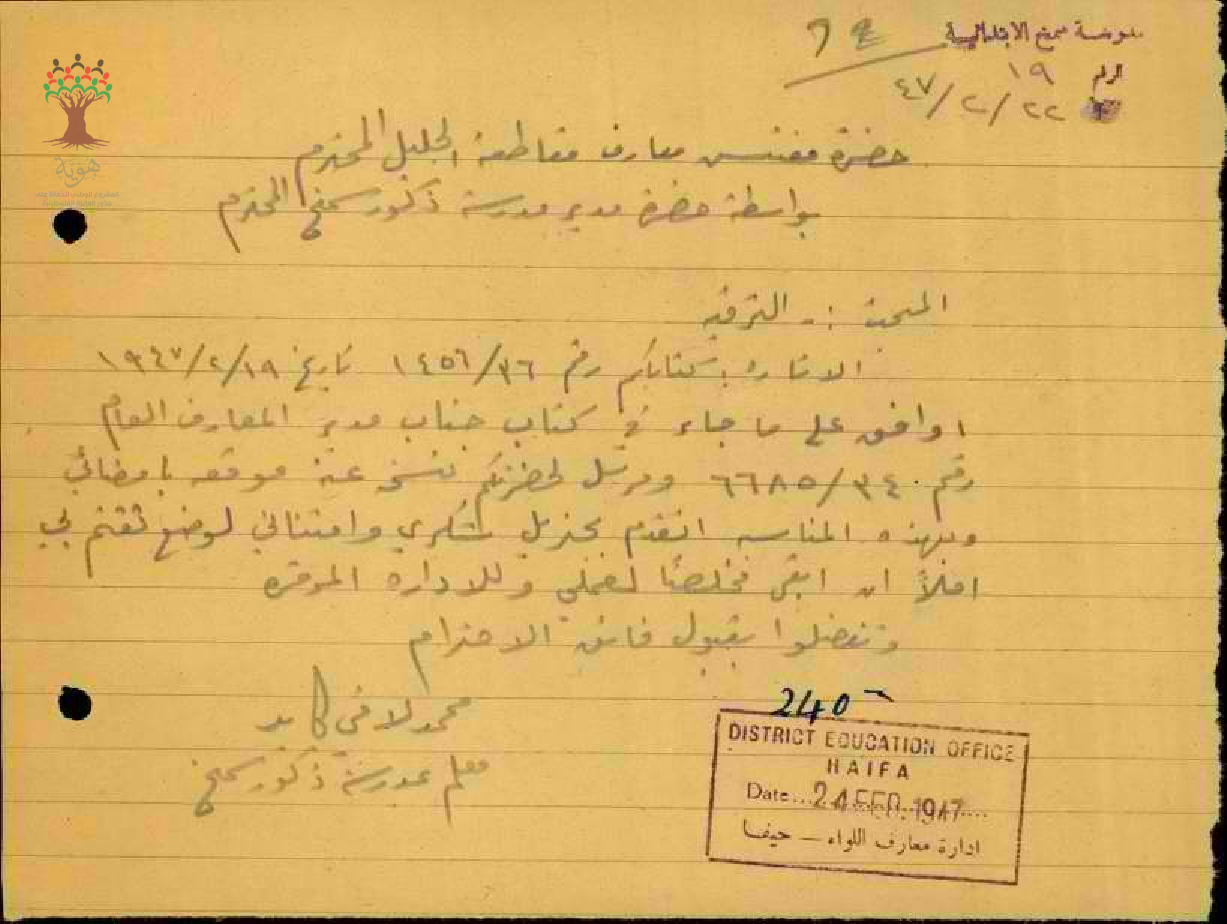 مدرسة سمخ الابتدائية
الرقم ١٩
٤٧/٢/٢٢
حضرة مفتش معارف مقاطعة الجليل المحترم
بواسطة حضرة مدير مدرسة ذكور سمخ المحترم
المبحث :ـ الترقيه
الاشاره : كتابكم رقم ١٤٥٦/٣٦ تاريخ ١٩٤٧/٢/١٩
اوافق على ما جاء في كتاب جناب مدير المعارف العام
رقم ٦٦٨٥/٣٤٠ ومرسل لحضرتكم نسخه عنه موقعه بامضائي
وبهذه المناسبه اتقدم بجزيل شكري وامتناني لوضع ثقتكم بي
املاً ان ابقى مخلصاً لعملي وللاداره الموقره
وتفضلوا بقبول فائق الاحترام
محمد لافي كايد
معلم بمدرسة ذكور سمخ
240
DISTRICT EDUCATION OFFICE
HAIFA
Date... 24 FEB. 1947
ادارة معارف اللواء — حيفا
هوية